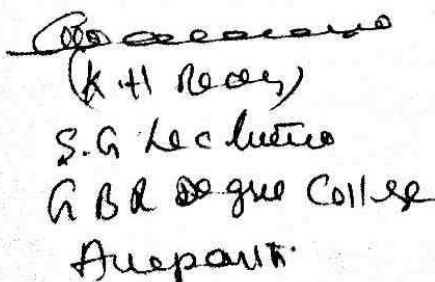 (K.H Reddy)
S.G Lecturer
G B R Degree College
Anaparti.